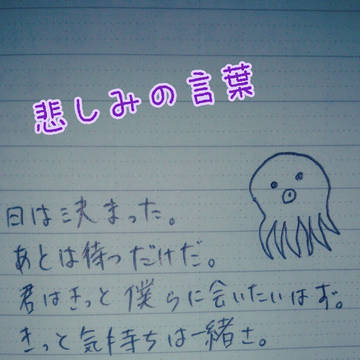 悲しみの言葉
日は決まった。
あとは待つだけだ。
君はきっと僕らに会いたいはず。
きっと気持ちは一緒さ。